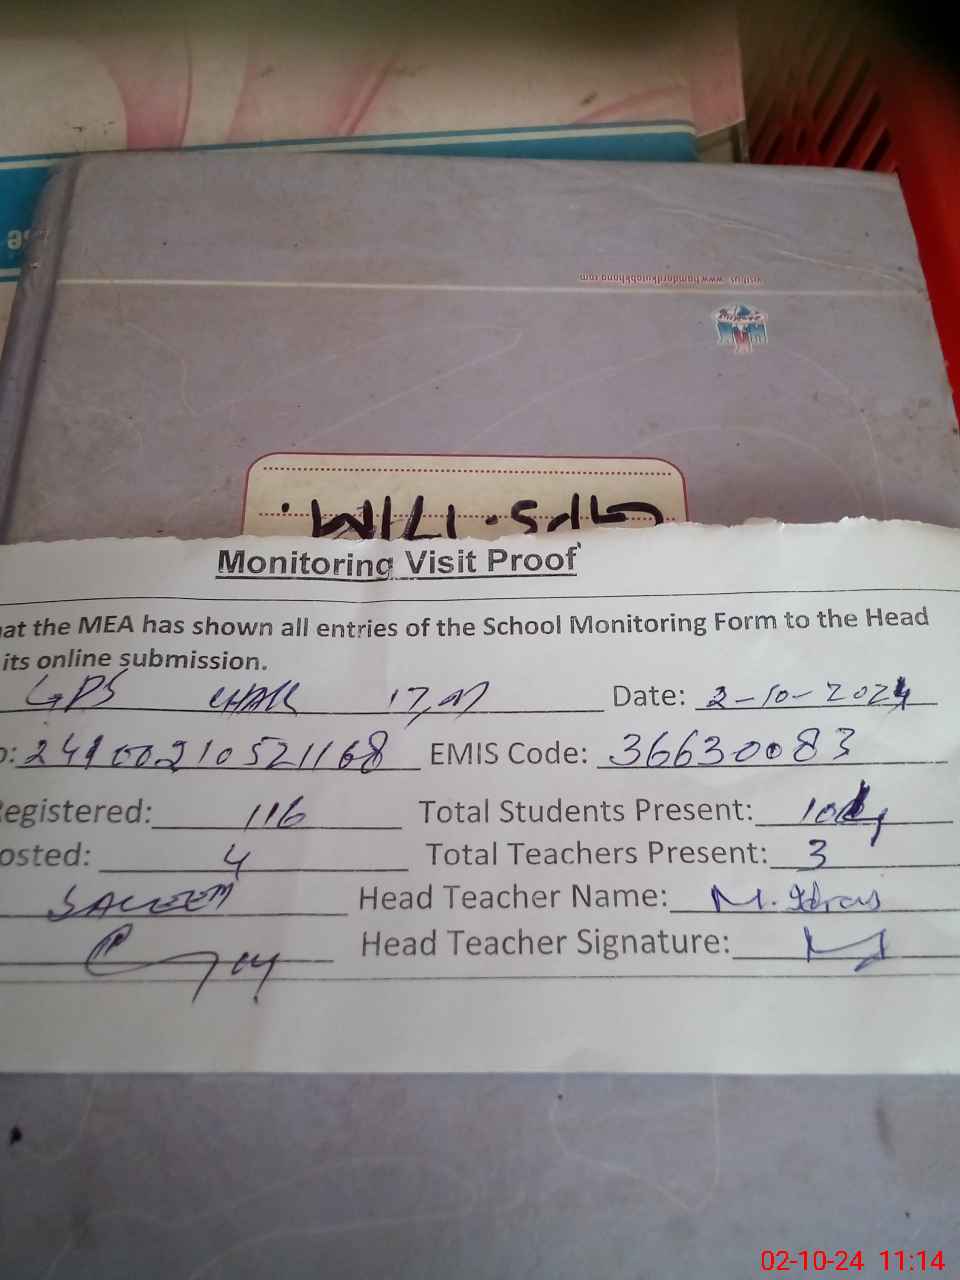 visit us www.hamdardkutabkhana.com
Monitoring Visit Proof
at the MEA has shown all entries of the School Monitoring Form to the Head
its online submission.
GPS CHAK 17 Date: 2-10-2024
24100210521168 EMIS Code: 36630083
egistered: 116 Total Students Present:
osted: 4 Total Teachers Present: 3
SALEEM Head Teacher Name: M. Idrees
Head Teacher Signature:
02-10-24 11:14